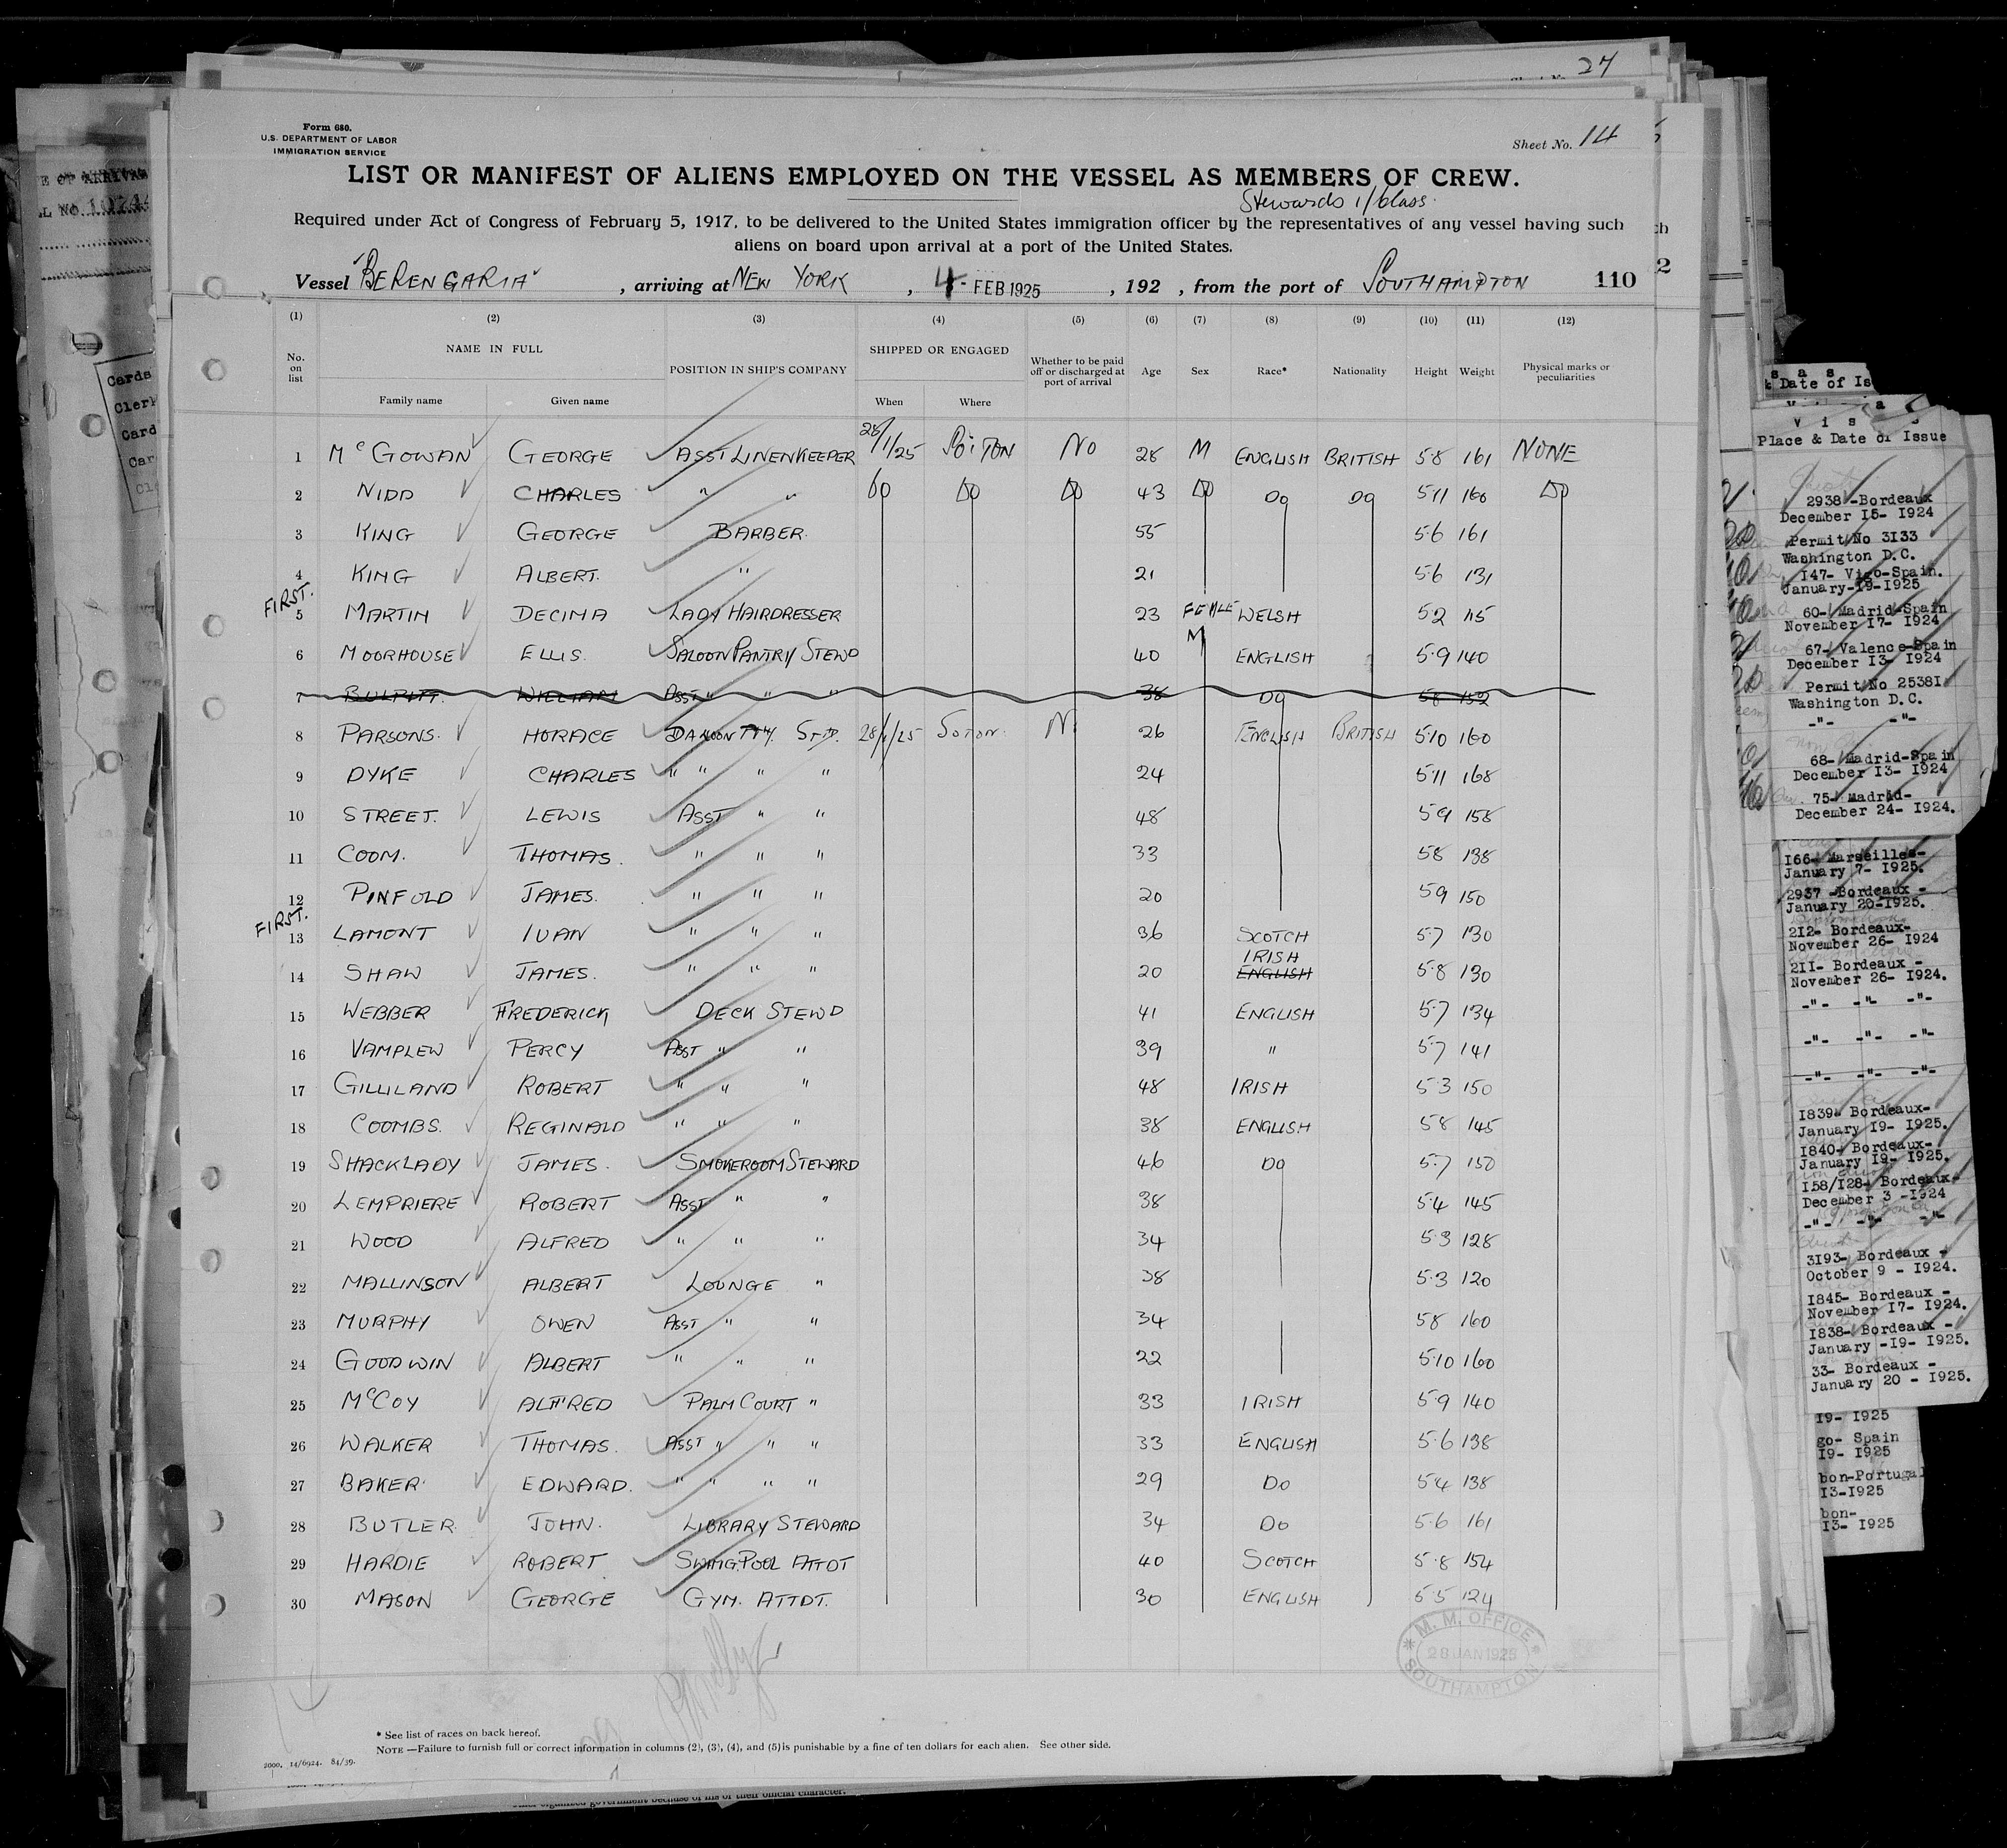 27
Form 680.
U.S. DEPARTMENT OF LABOR
IMMIGRATION SERVICE
Sheet No. 14
LIST OR MANIFEST OF ALIENS EMPLOYED ON THE VESSEL AS MEMBERS OF CREW.
Stewards 1/Class.
Required under Act of Congress of February 5, 1917, to be delivered to the United States immigration officer by the representatives of any vessel having such
aliens on board upon arrival at a port of the United States.
Vessel "BERENGARIA" , arriving at NEW YORK , 4- FEB 1925 , 192 , from the port of SOUTHAMPTON 110
(1) (2) (3) (4) (5) (6) (7) (8) (9) (10) (11) (12)
No. on list NAME IN FULL POSITION IN SHIP'S COMPANY SHIPPED OR ENGAGED Whether to be paid off or discharged at port of arrival Age Sex Race* Nationality Height Weight Physical marks or peculiarities
Family name Given name When Where
1 McGOWAN GEORGE ASST LINENKEEPER 28/1/25 SO'TON NO 28 M ENGLISH BRITISH 5.8 161 NONE
2 NIDD CHARLES " " DO DO DO 43 DO DO DO 5.11 160 DO
3 KING GEORGE BARBER. 55 5.6 161
4 KING ALBERT. " 21 5.6 131
FIRST.
5 MARTIN DECIMA LADY HAIRDRESSER 23 FEMLE WELSH 5.2 115
6 MOORHOUSE ELLIS. SALOON PANTRY STEWD 40 M ENGLISH 5.9 140
7 BULPITT. WILLIAM ASST " " " 38 DO 5.8 152
8 PARSONS. HORACE STD. 28/1/25 SOTON. N 26 ENGLISH BRITISH 5.10 160
9 DYKE CHARLES " " " " 24 5.11 168
10 STREET. LEWIS ASST " " 48 5.9 158
11 COOM. THOMAS. " " " 33 5.8 138
12 PINFOLD JAMES. " " " 20 5.9 150
FIRST.
13 LAMONT IVAN " " " 36 SCOTCH 5.7 130
14 SHAW JAMES. " " " 20 IRISH ENGLISH 5.8 130
15 WEBBER FREDERICK DECK STEWD 41 ENGLISH 5.7 134
16 VAMPLEW PERCY ASST " " 39 " 5.7 141
17 GILLILAND ROBERT " " " 48 IRISH 5.3 150
18 COOMBS. REGINALD " " " 38 ENGLISH 5.8 145
19 SHACKLADY JAMES. SMOKEROOM STEWARD 46 DO 5.7 150
20 LEMPRIERE ROBERT ASST " " 38 5.4 145
21 WOOD ALFRED " " " 34 5.3 128
22 MALLINSON ALBERT LOUNGE " 38 5.3 120
23 MURPHY OWEN ASST " " 34 5.8 160
24 GOODWIN ALBERT " " " 22 5.10 160
25 McCOY ALFRED PALM COURT " 33 IRISH 5.9 140
26 WALKER THOMAS. ASST " " " 33 ENGLISH 5.6 138
27 BAKER EDWARD. " " " " 29 DO 5.4 138
28 BUTLER. JOHN. LIBRARY STEWARD 34 DO 5.6 161
29 HARDIE ROBERT SWMG. POOL ATTDT 40 SCOTCH 5.8 154
30 MASON GEORGE GYM. ATTDT. 30 ENGLISH 5.5 124
M. M. OFFICE
28 JAN 1925
SOUTHAMPTON
* See list of races on back hereof.
NOTE —Failure to furnish full or correct information in columns (2), (3), (4), and (5) is punishable by a fine of ten dollars for each alien. See other side.
2000. 14/6924. 84/39.
Cards
Cler
Card
Car
& Date of Is
V i s
Place & Date of Issue
2938 -Bordeaux
December 15- 1924
Permit No 3133
Washington D.C.
147- Vigo-Spain.
January-19-1925
60- Madrid-Spain
November 17- 1924
67- Valence-Spain
December 13- 1924
Permit No 25381
Washington D.C.
-"- -"-
68- Madrid-Spain
December 13- 1924
75- Madrid-
December 24- 1924.
166- Marseilles-
January 7- 1925.
2937 -Bordeaux -
January 20-1925.
212- Bordeaux-
November 26- 1924
211- Bordeaux -
November 26- 1924.
-"- -"- -"-
-"- -"- -"-
-"- -"- -"-
1839- Bordeaux-
January 19- 1925.
1840- Bordeaux-
January 19- 1925.
158/128- Bordeaux-
December 3 -1924
-"- -"- -"-
3193- Bordeaux -
October 9 - 1924.
1845- Bordeaux -
November 17- 1924.
1838- Bordeaux -
January -19- 1925.
33- Bordeaux -
January 20 - 1925.
19- 1925
go- Spain
19- 1925
bon-Portugal
13-1925
bon-
13- 1925